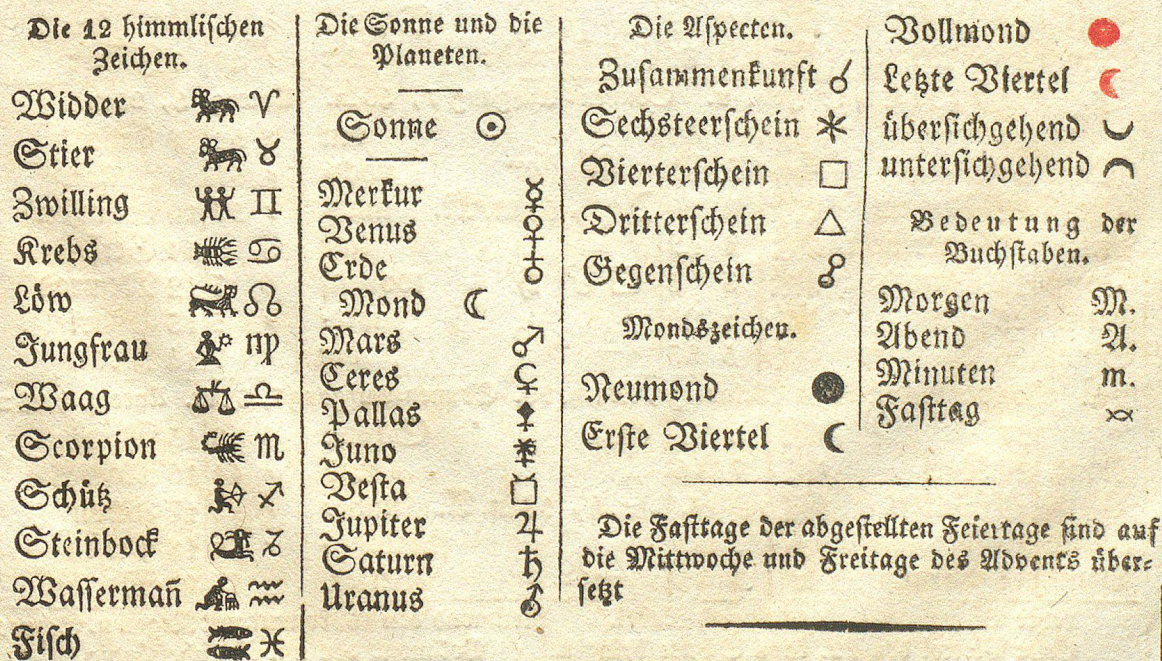 Die 12 himmlischen
Zeichen.
Widder ♈
Stier ♉
Zwilling ♊
Krebs ♋
Löw ♌
Jungfrau ♍
Waag ♎
Scorpion ♏
Schütz ♐
Steinbock ♑
Wassermañ ♒
Fisch ♓
Die Sonne und die
Planeten.
Sonne ☉
Merkur ☿
Venus ♀
Erde ♁
Mond ☾
Mars ♂
Ceres ⚳
Pallas ⚴
Juno ⚵
Vesta ⚶
Jupiter ♃
Saturn ♄
Uranus ⛢
Die Aspecten.
Zusammenkunft ☌
Sechsteerschein ⚹
Vierterschein □
Dritterschein △
Gegenschein ☍
Mondszeichen.
Neumond ●
Erste Viertel ☾
Vollmond ●
Letzte Viertel ☾
übersichgehend ◡
untersichgehend ◠
Bedeutung der
Buchstaben.
Morgen M.
Abend A.
Minuten m.
Fasttag
Die Fasttage der abgestellten Feiertage sind auf
die Mittwoche und Freitage des Advents über-
setzt